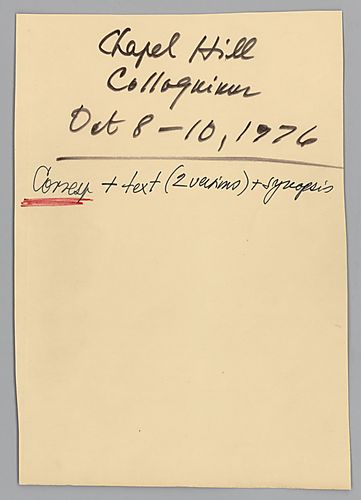 Chapel Hill
Colloquium
Oct 8-10, 1976
Corresp + text (2 versions) + synopsis